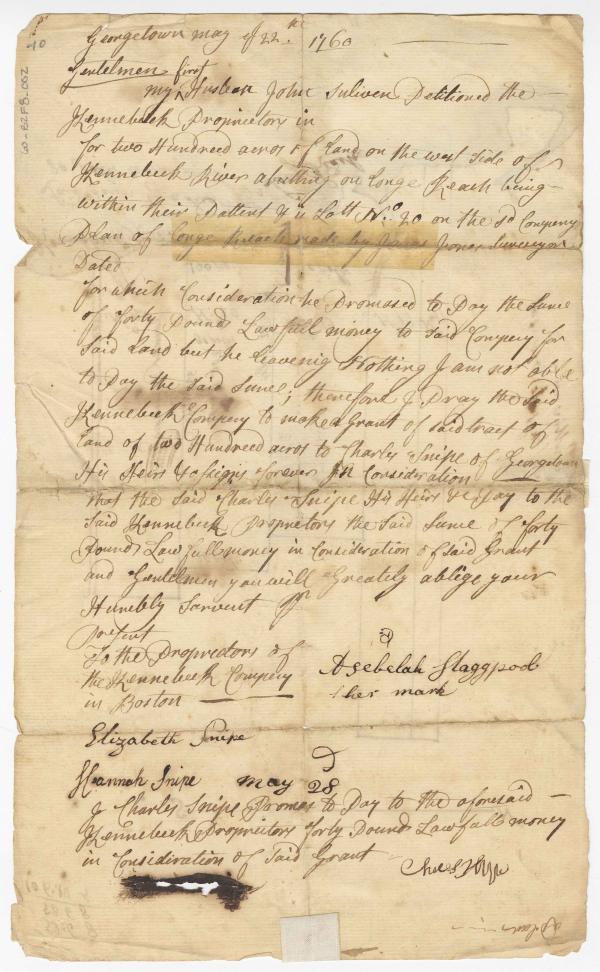 Georgetown may ye 22th 1760
Gentelmen
my first Husben John Suliven Petitioned the
Kennebeck Proprietors in
for two Hundreed acros of Land on the west Side of
Kennebeck River abutting on Longe Reach being
within their Pattent & is Lott No 20 on the sd Company
Plan of Longe Reach made by Jonas Jones Surveyor
Dated
for which Consideration he Promased to Pay the Sume
of forty Pounds Lawfull money to Said Compeny for
Said Land but he Leaveing Nothing I am not able
to Pay the Said Sume; therefore I Pray the Said
Kennebeck Company to make a Grant of said tract of
Land of two Hundreed acros to Charles Snipe of Georgetown
His Heirs & assigns forever In Consideration
that the Said Charles Snipe His Heirs &c Pay to the
Said Kennebeck Proprietors the Said Sume of forty
Pounds Law full money in Consideration of Said Grant
and Gentelmen you will Greately oblige your
Humbly Sarvent
present
To the Proprietors of
the Kennebeck Company
in Boston
Asebelah Staggpool
her mark
Elizabeth Snipe
Hannah Snipe may 28
I Charles Snipe Promes to Pay to the aforesaid
Kennebeck Proprietors forty Pounds Lawfull money
in Consideration of Said Grant
Chas Snipe
10
W-B2F8-002